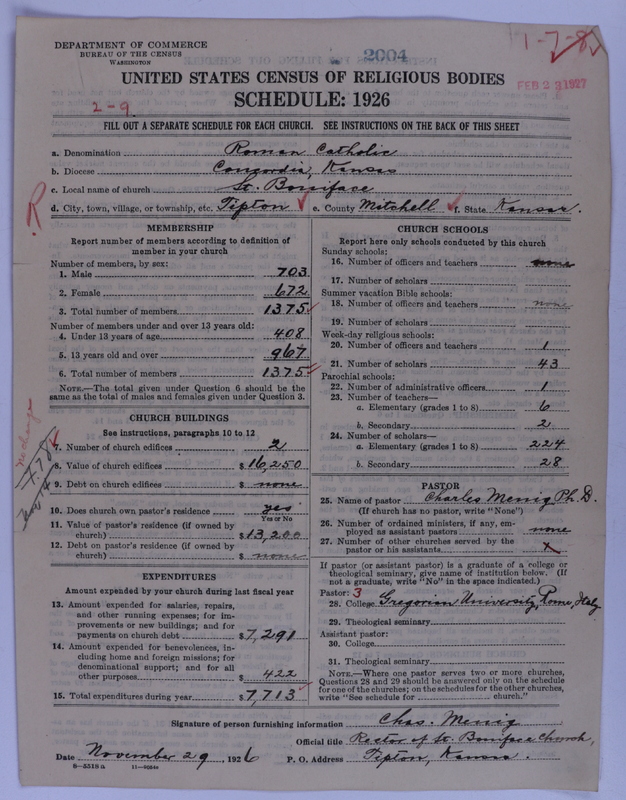 DEPARTMENT OF COMMERCE
BUREAU OF THE CENSUS
WASHINGTON
2004
1-7-8
UNITED STATES CENSUS OF RELIGIOUS BODIES
FEB 23 1927
SCHEDULE: 1926
2-9
FILL OUT A SEPARATE SCHEDULE FOR EACH CHURCH. SEE INSTRUCTIONS ON THE BACK OF THIS SHEET
a. Denomination Roman Catholic
b. Diocese Concordia, Kansas
c. Local name of church St. Boniface
R
d. City, town, village, or township, etc. Tipton e. County Mitchell f. State Kansas.
MEMBERSHIP
Report number of members according to definition of
member in your church
Number of members, by sex:
1. Male 703
2. Female 672
3. Total number of members 1375
Number of members under and over 13 years old:
4. Under 13 years of age 408
5. 13 years old and over 967
6. Total number of members 1375
NOTE.—The total given under Question 6 should be the
same as the total of males and females given under Question 3.
CHURCH BUILDINGS
See instructions, paragraphs 10 to 12
no change
7. Number of church edifices 2
8. Value of church edifices $16,250
9. Debt on church edifices $ none
10. Does church own pastor's residence yes
Yes or No
11. Value of pastor's residence (if owned by
church) $13,200
12. Debt on pastor's residence (if owned by
church) $ none
EXPENDITURES
Amount expended by your church during last fiscal year
13. Amount expended for salaries, repairs,
and other running expenses; for im-
provements or new buildings; and for
payments on church debt $7,291
14. Amount expended for benevolences, in-
cluding home and foreign missions; for
denominational support; and for all
other purposes $ 422
15. Total expenditures during year $7,713
CHURCH SCHOOLS
Report here only schools conducted by this church
Sunday schools:
16. Number of officers and teachers none
17. Number of scholars
Summer vacation Bible schools:
18. Number of officers and teachers none
19. Number of scholars
Week-day religious schools:
20. Number of officers and teachers 1
21. Number of scholars 43
Parochial schools:
22. Number of administrative officers 1
23. Number of teachers—
a. Elementary (grades 1 to 8) 6
b. Secondary 2
24. Number of scholars—
a. Elementary (grades 1 to 8) 224
b. Secondary 28
PASTOR
25. Name of pastor Charles Menig Ph. D.
(If church has no pastor, write "None")
26. Number of ordained ministers, if any, em-
ployed as assistant pastors none
27. Number of other churches served by the
pastor or his assistants x
If pastor (or assistant pastor) is a graduate of a college or
theological seminary, give name of institution below. (If
not a graduate, write "No" in the space indicated.)
Pastor: 3
28. College Gregorian University, Rome, Italy
29. Theological seminary
Assistant pastor:
30. College
31. Theological seminary
NOTE.—Where one pastor serves two or more churches,
Questions 28 and 29 should be answered only on the schedule
for one of the churches; on the schedules for the other churches,
write "See schedule for church."
Signature of person furnishing information Chas. Menig
Official title Rector of St. Boniface Church,
Date November 29, 1926 P. O. Address Tipton, Kansas.
8—5518 a